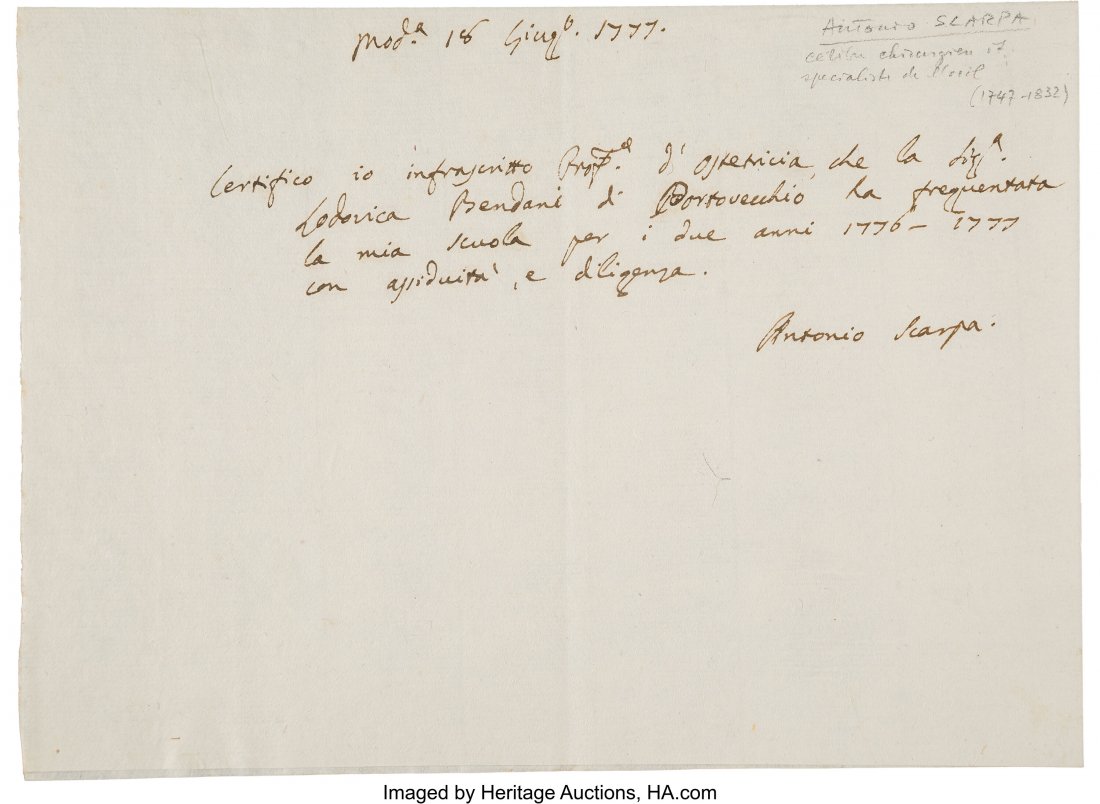 Mod.ª 18 Giugº. 1777.
Antonio SCARPA
celibu chirurgien it.
specialiste de l'oeil
(1747-1832)
Certifico io infrascritto Prof.ᵉ d'ostetricia, che la Sig.ª
Lodovica Bendani di Portovecchio ha frequentata
la mia scuola per i due anni 1776 - 1777
con assiduità, e diligenza.
Antonio Scarpa.
Imaged by Heritage Auctions, HA.com